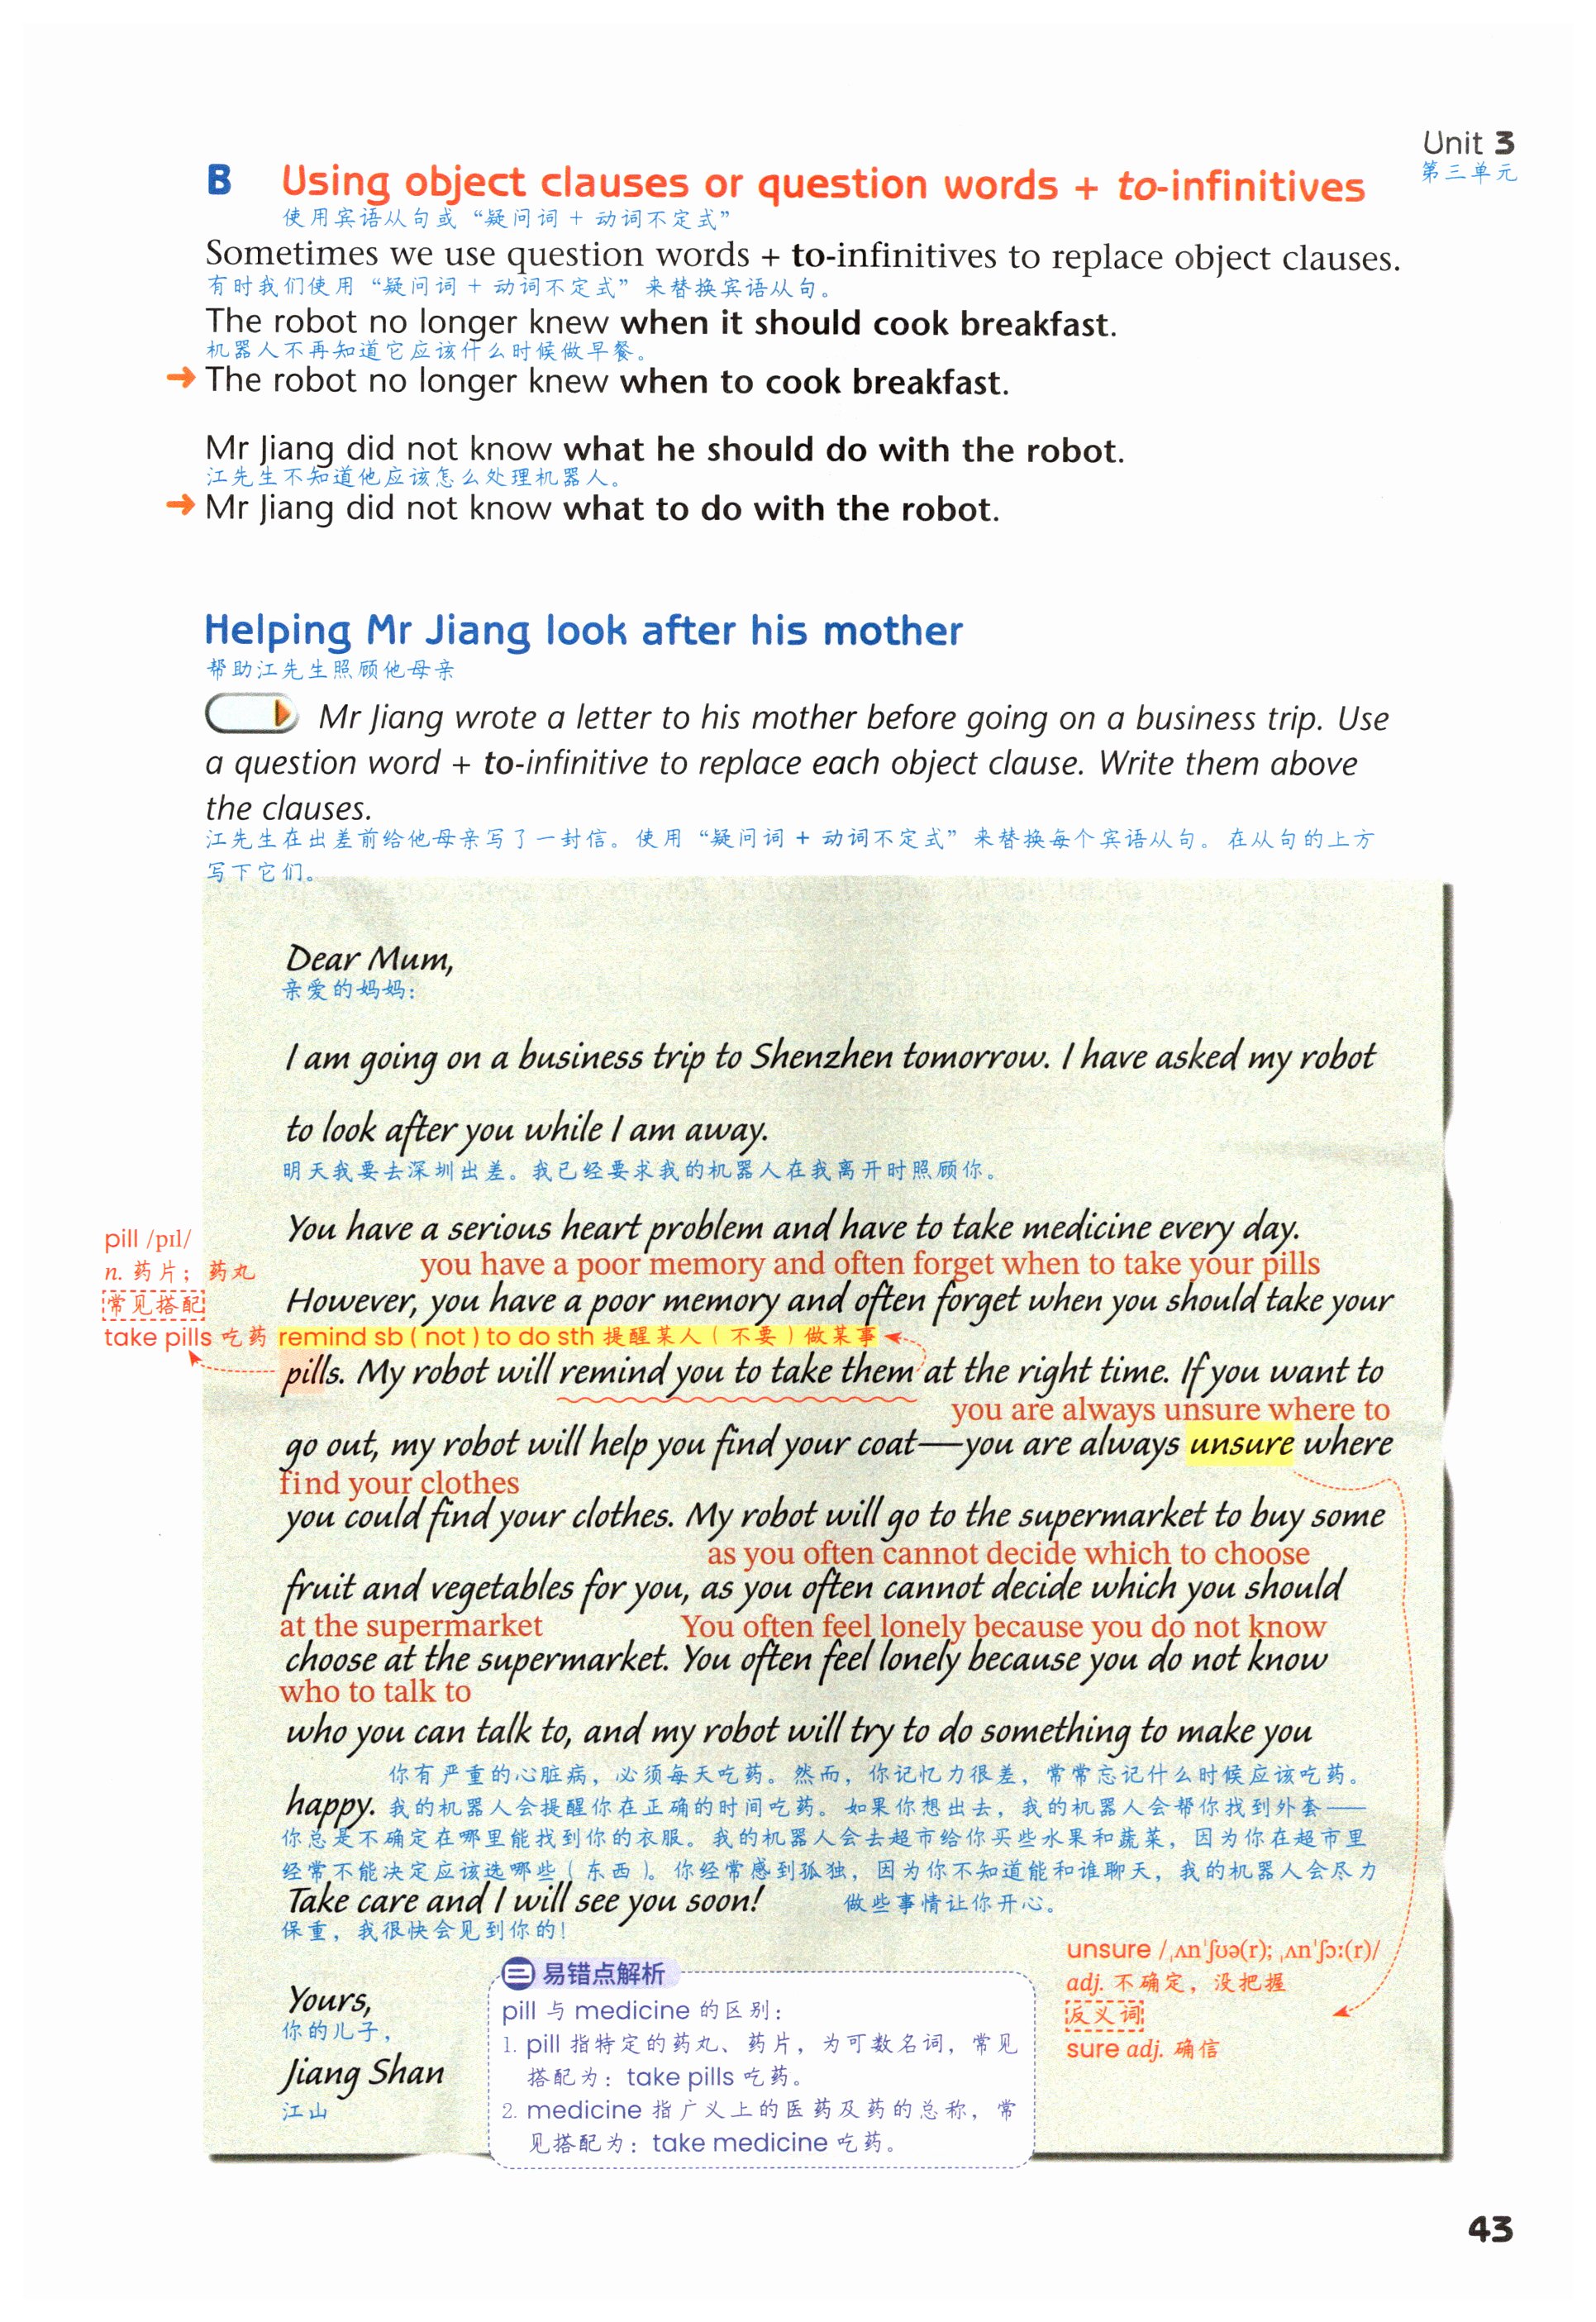 Unit 3
第三单元
B Using object clauses or question words + to-infinitives
使用宾语从句或“疑问词 + 动词不定式”
Sometimes we use question words + to-infinitives to replace object clauses.
有时我们使用“疑问词 + 动词不定式”来替换宾语从句。
The robot no longer knew when it should cook breakfast.
机器人不再知道它应该什么时候做早餐。
→ The robot no longer knew when to cook breakfast.
Mr Jiang did not know what he should do with the robot.
江先生不知道他应该怎么处理机器人。
→ Mr Jiang did not know what to do with the robot.
Helping Mr Jiang look after his mother
帮助江先生照顾他母亲
Mr Jiang wrote a letter to his mother before going on a business trip. Use
a question word + to-infinitive to replace each object clause. Write them above
the clauses.
江先生在出差前给他母亲写了一封信。使用“疑问词 + 动词不定式”来替换每个宾语从句。在从句的上方
写下它们。
Dear Mum,
亲爱的妈妈:
I am going on a business trip to Shenzhen tomorrow. I have asked my robot
to look after you while I am away.
明天我要去深圳出差。我已经要求我的机器人在我离开时照顾你。
You have a serious heart problem and have to take medicine every day.
pill /pɪl/
n. 药片；药丸
常见搭配
take pills 吃药
you have a poor memory and often forget when to take your pills
However, you have a poor memory and often forget when you should take your
remind sb ( not ) to do sth 提醒某人（不要）做某事
pills. My robot will remind you to take them at the right time. If you want to
you are always unsure where to
go out, my robot will help you find your coat—you are always unsure where
find your clothes
you could find your clothes. My robot will go to the supermarket to buy some
as you often cannot decide which to choose
fruit and vegetables for you, as you often cannot decide which you should
at the supermarket You often feel lonely because you do not know
choose at the supermarket. You often feel lonely because you do not know
who to talk to
who you can talk to, and my robot will try to do something to make you
你有严重的心脏病，必须每天吃药。然而，你记忆力很差，常常忘记什么时候应该吃药。
happy. 我的机器人会提醒你在正确的时间吃药。如果你想出去，我的机器人会帮你找到外套——
你总是不确定在哪里能找到你的衣服。我的机器人会去超市给你买些水果和蔬菜，因为你在超市里
经常不能决定应该选哪些（东西）。你经常感到孤独，因为你不知道能和谁聊天，我的机器人会尽力
Take care and I will see you soon! 做些事情让你开心。
保重，我很快会见到你的!
unsure /ˌʌnˈʃʊə(r); ˌʌnˈʃɔː(r)/
adj. 不确定，没把握
反义词
sure adj. 确信
Yours,
你的儿子，
Jiang Shan
江山
易错点解析
pill 与 medicine 的区别:
1. pill 指特定的药丸、药片，为可数名词，常见
搭配为: take pills 吃药。
2. medicine 指广义上的医药及药的总称，常
见搭配为: take medicine 吃药。
43